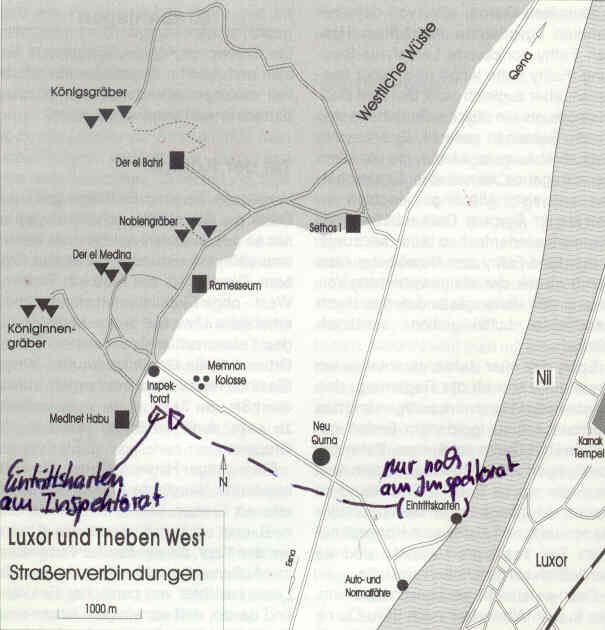 Westliche Wüste
Qena
Königsgräber
Der el Bahri
Noblengräber
Sethos I
Der el Medina
Ramesseum
Königinnen-
gräber
Memnon
Kolosse
Inspek-
torat
Medinet Habu
Nil
Karnak
Tempel
Neu
Qurna
nur noch
am Inspektorat
(Eintrittskarten)
Eintrittskarten
am Inspektorat
N
Luxor und Theben West
Straßenverbindungen
1000 m
Esna
Luxor
Auto- und
Normalfähre